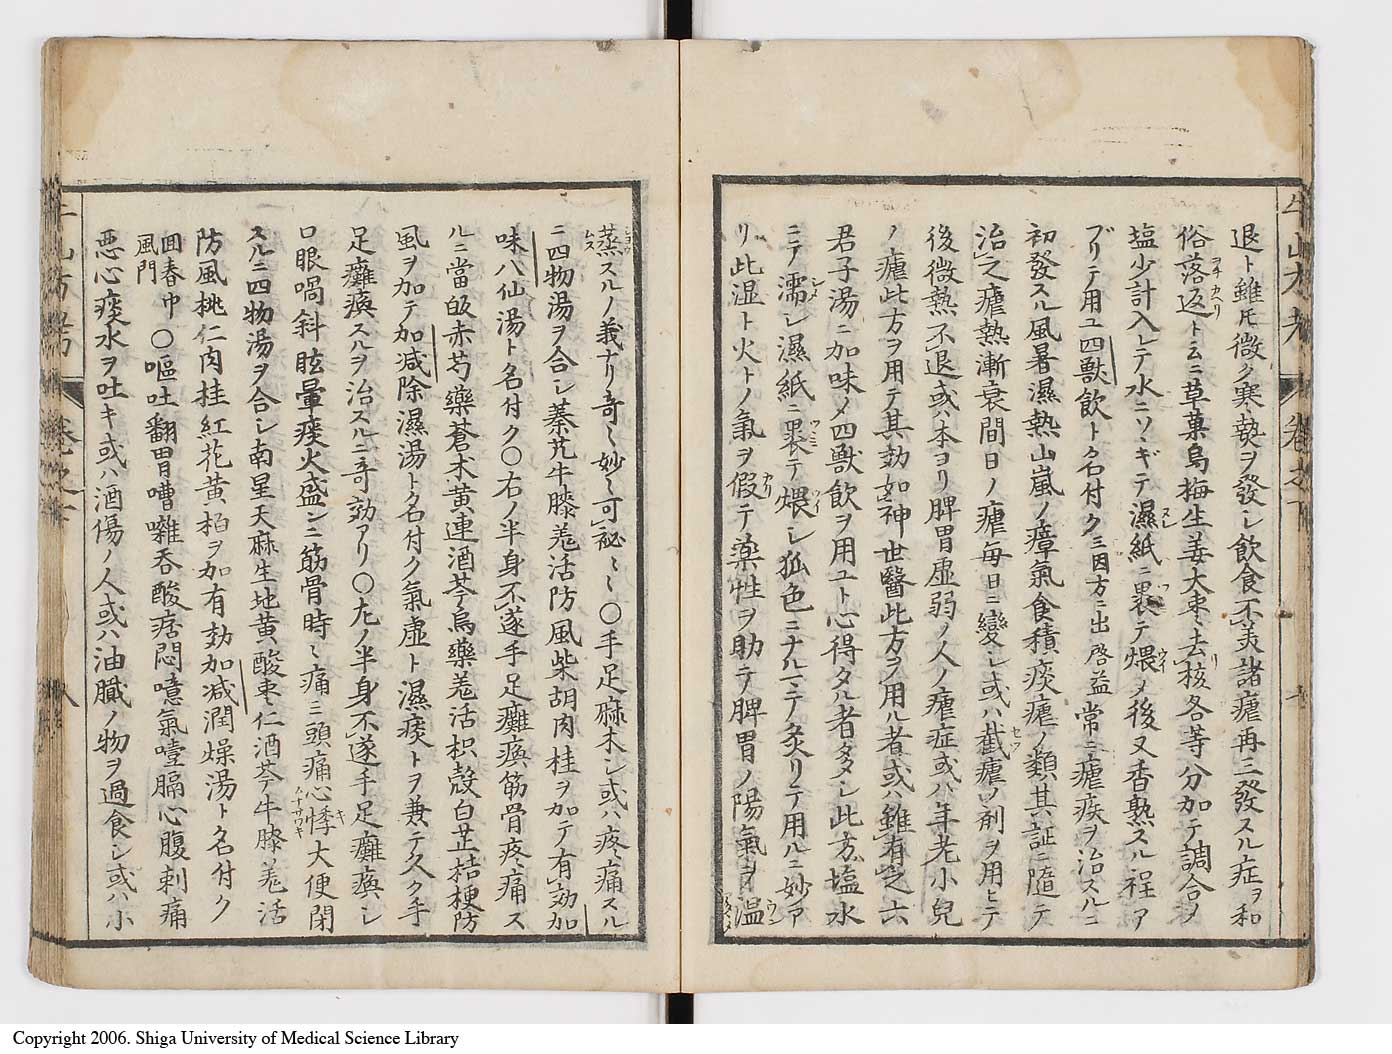 退ト雖𪜈微ク寒熱ヲ發シ飲食不美諸瘧再三發スル症ヲ和
俗落返ト云ニ草菓烏梅生姜大棗ヽ去核各等分加テ調合ヲ
塩少計入レテ水ニソヽギテ濕紙ニ裹テ煨メ後又香熟スル程ア
ブリテ用ユ四獸飲ト名付ク三因方ニ出啓益常ニ瘧疾ヲ治スルニ
初發スル風暑濕熱山嵐ノ瘴氣食積痰瘧ノ類其証ニ隨テ
治之瘧熱漸衰間日ノ瘧毎日ニ變シ或ハ截瘧ノ剤ヲ用ヒテ
後微熱不退或ハ本ヨリ脾胃虚弱ノ人ノ瘧症或ハ年老小兒
ノ瘧此方ヲ用テ其効如神世醫此方ヲ用ル者或ハ雖有之六
君子湯ニ加味メ四獸飲ヲ用ユト心得タル者多タシ此方ハ塩水
ニテ濡シ濕紙ニ裹テ煨シ狐色ニナルマテ炙リテ用ルニ妙ア
リ此湿ト火トノ氣ヲ假テ薬性ヲ助テ脾胃ノ陽氣ヲ温
蒸スルノ義ナリ奇ヽ妙ヽ可秘ヽヽ〇手足麻木シ或ハ疼痛スル
ニ四物湯ヲ合シ蓁艽牛膝羌活防風柴胡肉桂ヲ加テ有効加
味八仙湯ト名付ク〇右ノ半身不遂手足癱瘓筋骨疼痛ス
ルニ當皈赤芍藥蒼朮黄連酒芩烏藥羌活枳殻白芷桔梗防
風ヲ加テ加減除濕湯ト名付ク氣虚ト濕痰トヲ兼テ久ク手
足癱瘓スルヲ治スルニ奇効アリ〇左ノ半身不遂手足癱瘓シ
口眼喎斜眩暈痰火盛ンニ筋骨時ヽ痛ミ頭痛心悸大便閉
スルニ四物湯ヲ合シ南星天麻生地黄酸棗仁酒芩牛膝羌活
防風桃仁肉桂紅花黄柏ヲ加有効加减潤燥湯ト名付ク
回春中風門〇嘔吐翻胃嘈囃呑酸痞悶噫氣噎膈心腹刺痛
悪心痰水ヲ吐キ或ハ酒傷ノ人或ハ油膩ノ物ヲ過食シ或ハ小
Copyright 2006. Shiga University of Medical Science Library